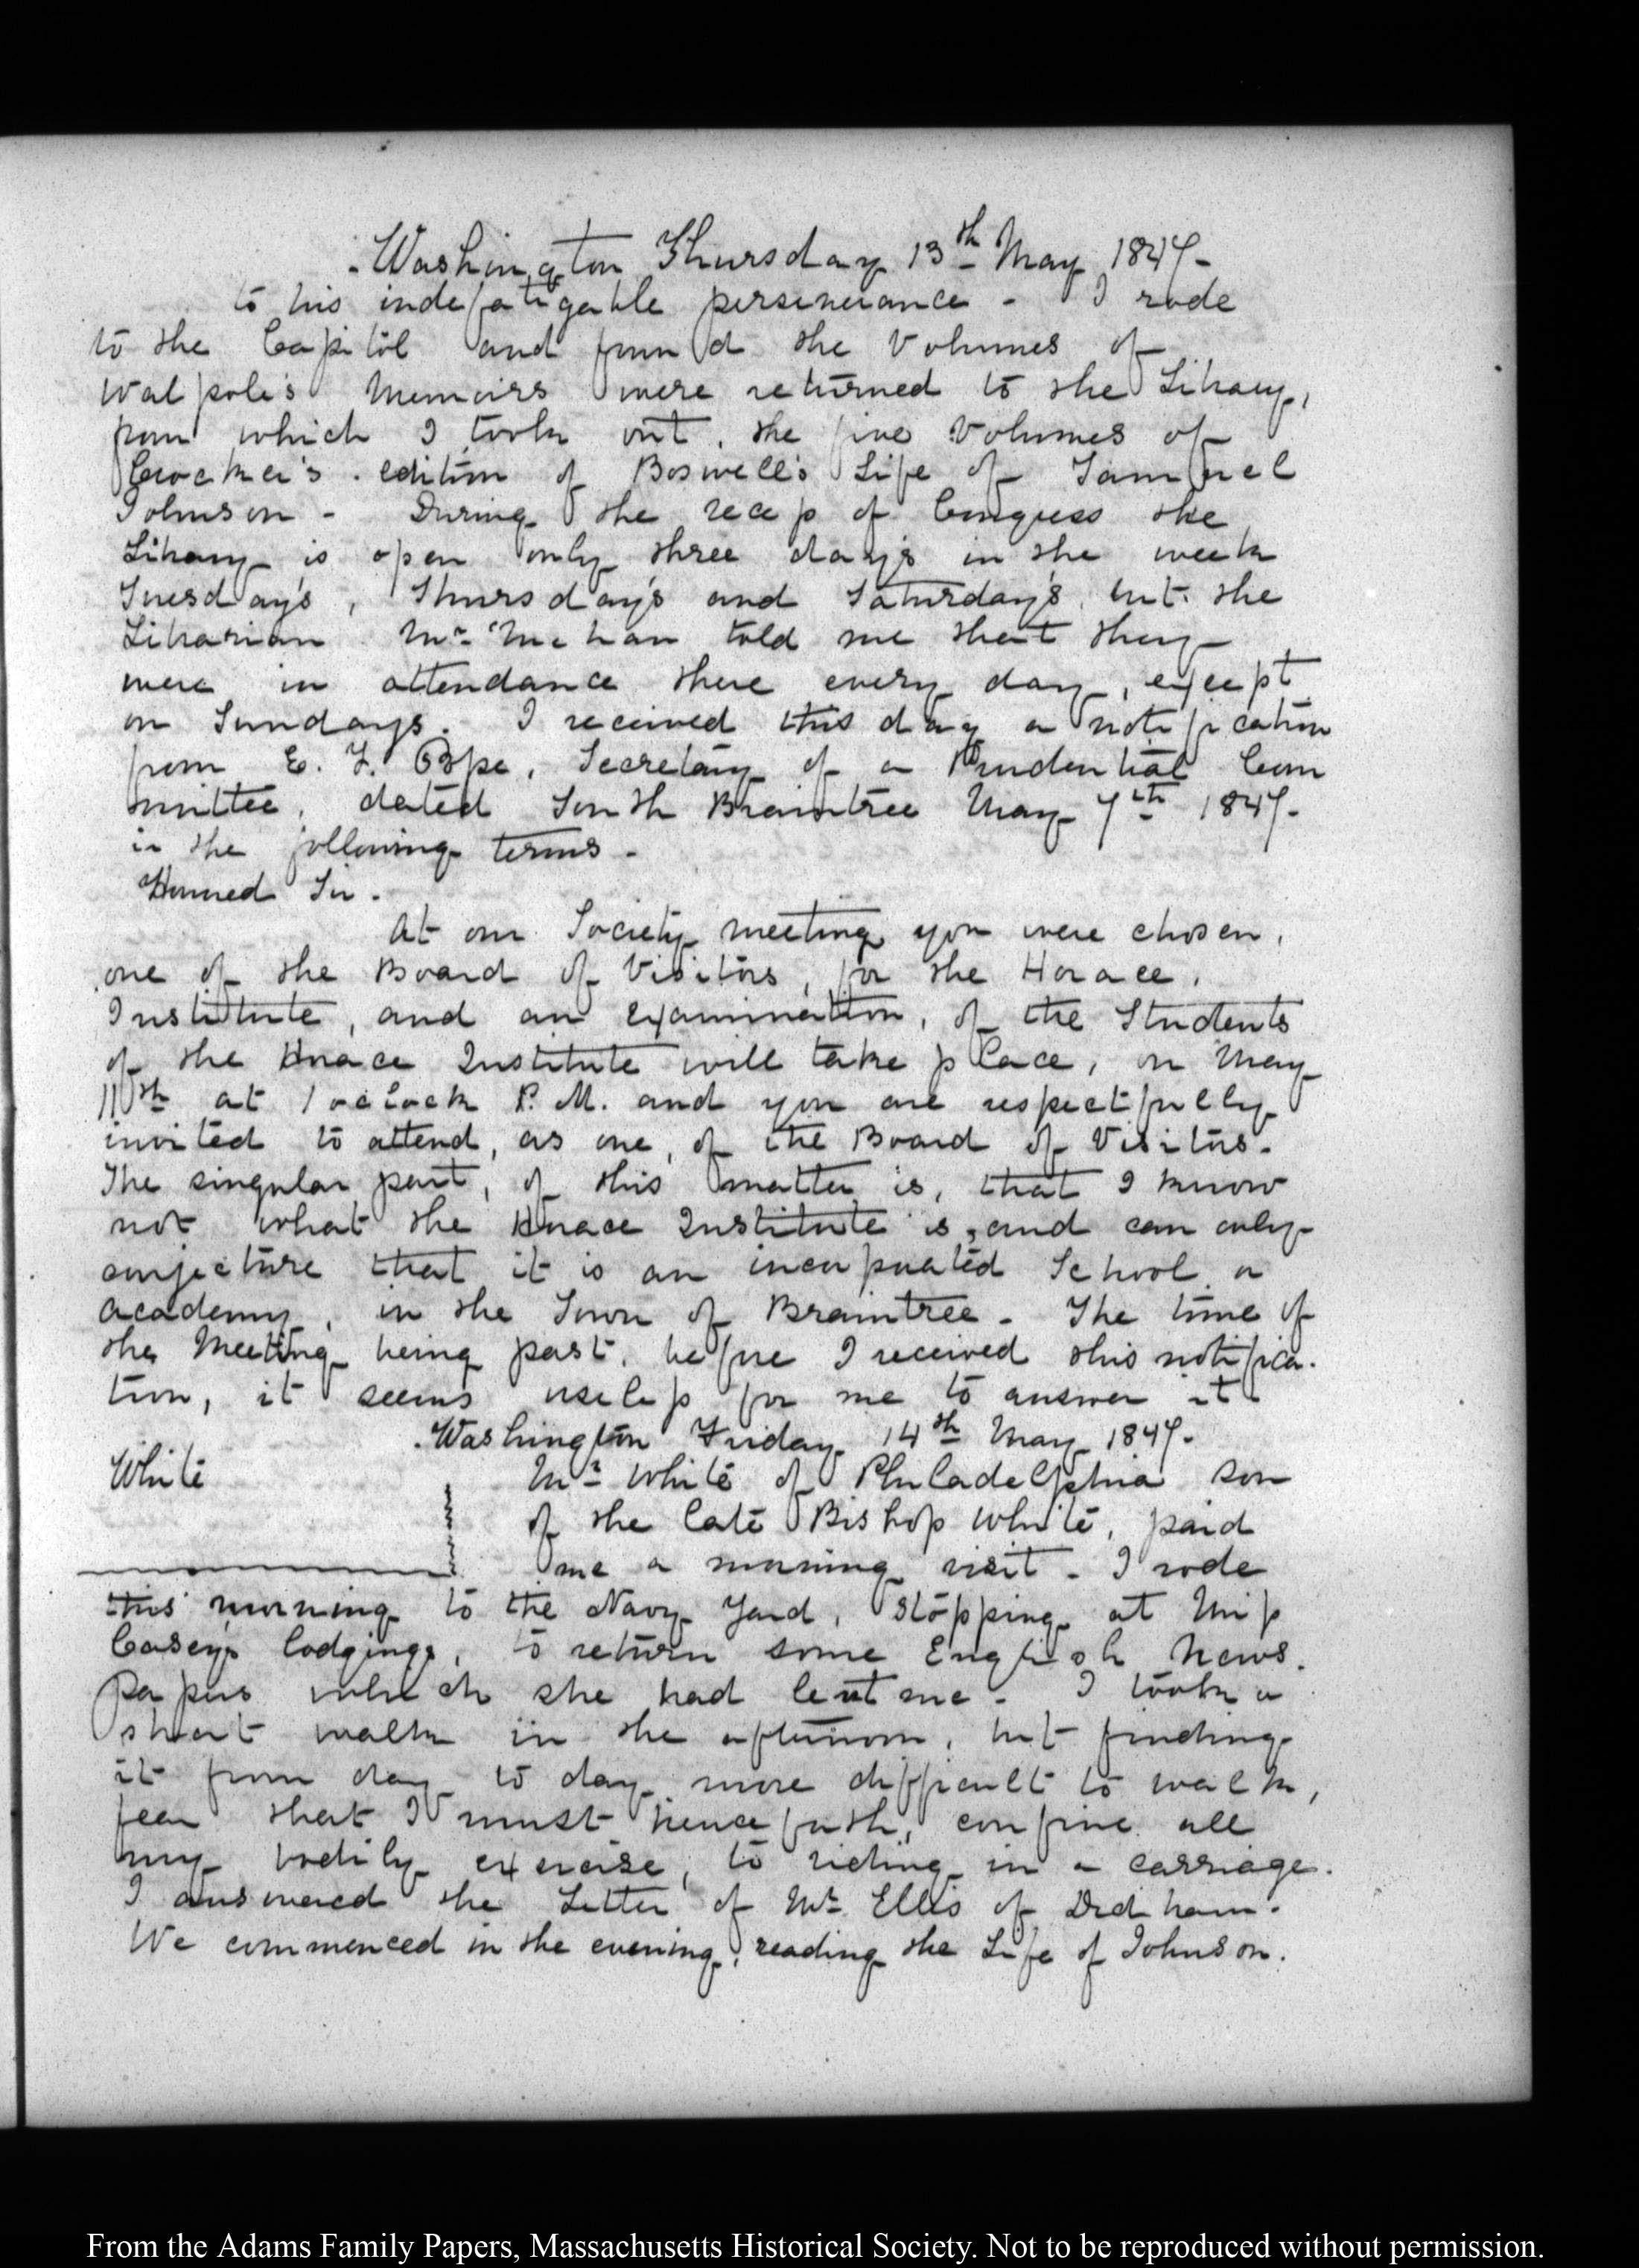 Washington Thursday 13th May 1847-
to his indefatigable perseverance - I rode
to the Capitol and found the Volumes of
Walpole's Memoirs were returned to the Library,
from which I took out, the five Volumes of
Crocker's edition of Boswell's Life of Samuel
Johnson - During the recess of Congress the
Library is open only three days in the week
Tuesday's, Thursday's and Saturday's, but the
Librarian Mr. Mehan told me that they
were in attendance there every day, except
on Sundays. I received this day a notification
from E. F. Pope, Secretary of a Prudential Com
mittee, dated South Braintree May 7th 1847-
in the following terms -
Honned Sir.
At our Society meeting you were chosen,
one of the Board of Visitors, for the Horace,
Institute, and an examination, of the Students
of the Horace Institute will take place, on May
11th at 1 oclock P.M. and you are respectfully
invited to attend, as one, of the Board of Visitors.
The singular part, of this matter is, that I know
not what the Horace Institute is, and can only
conjecture that it is an incorporated School or
academy, in the Town of Braintree - The time of
the Meeting being past, before I received this notifica-
tion, it seems useless for me to answer it
Washington Friday 14th May 1847-
White
Mr. White of Philadelphia son
of the late Bishop White, paid
me a morning visit - I rode
this morning to the Navy Yard, stopping at Miss
Casey's lodgings, to return some English News.
Papers which she had lent me - I took a
short walk in the afternoon, but finding
it from day to day more difficult to walk,
fear that I must henceforth, confine all
my bodily exercise, to riding in a carriage.
I answered the Letter of Mr. Ellis of Dedham.
We commenced in the evening, reading the Life of Johnson.
From the Adams Family Papers, Massachusetts Historical Society. Not to be reproduced without permission.